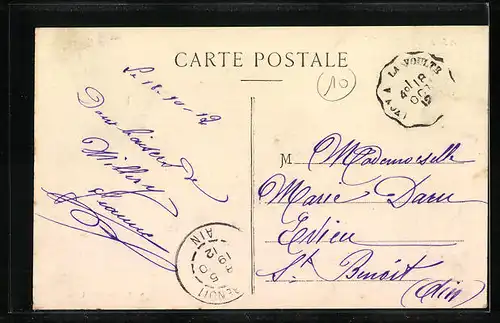 CARTE POSTALE
10
LA VOULTE A
18
OCT
Le 18-10-12
Doux baisers de
M
Mademoiselle
Marie Daru
Evieu
St Benoit
(Ain)
BENOIT
AIN